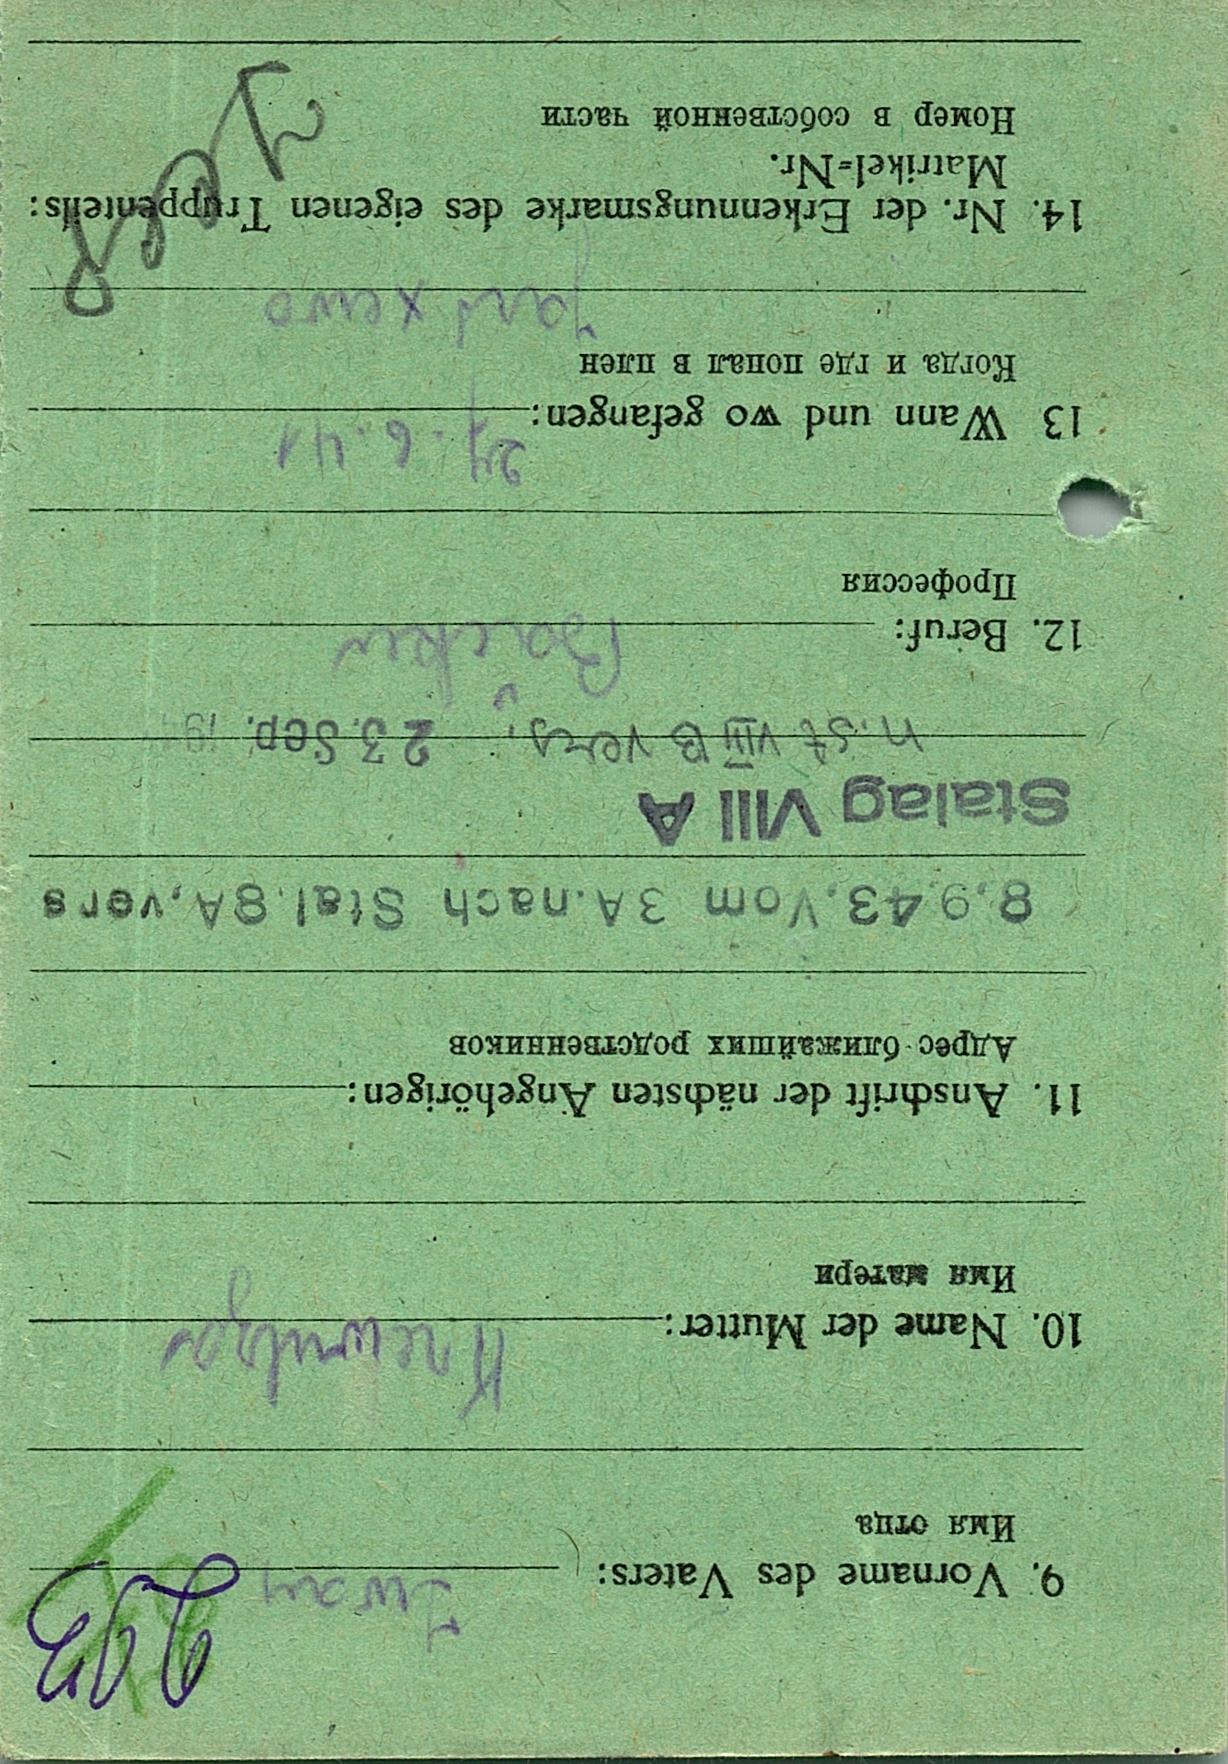 9. Vorname des Vaters: Iwan
Имя отца
10. Name der Mutter:
Имя матери
11. Anschrift der nächsten Angehörigen:
Адрес ближайших родственников
8.9.43. Vom 3A. nach Stal. 8A, vers
Stalag VIII A
n. St VIII B vers. 23. Sep. 194
12. Beruf: Bäcker
Профессия
13 Wann und wo gefangen: 27.6.41
Когда и где попал в плен
14. Nr. der Erkennungsmarke des eigenen Truppenteils:
Matrikel=Nr.
Номер в собственной части